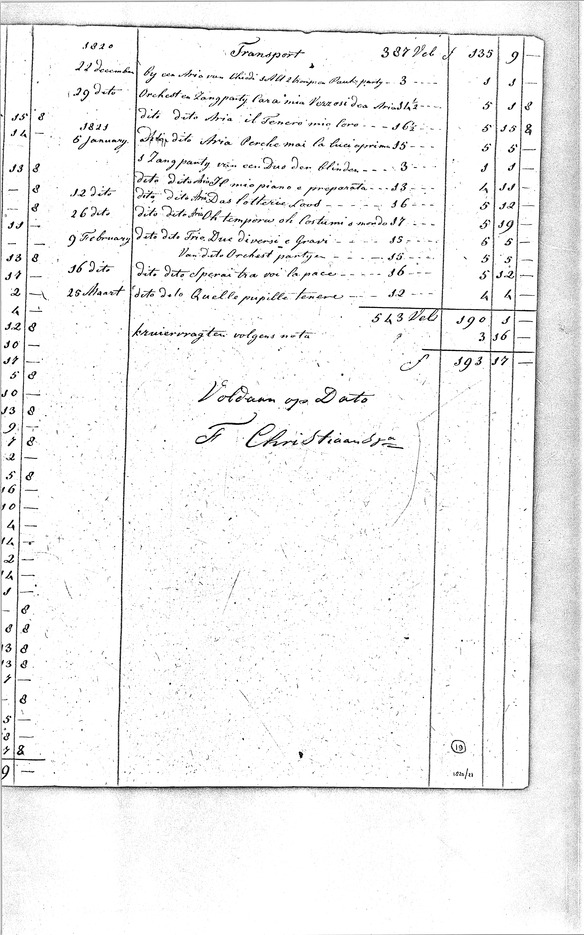 1820
Transport 387 Vel f 135 9 —
22 december by een Aria van 3 1 1 —
29 dito Orchest en Zangparty Cara mia Vezzosi dea Aria 14½ 5 1 8
dito dito Aria il Tenero mio Core 16½ 5 15 8
1821
5 January dito Aria Perche mai la luci aprim 15 5 5 —
1 Zang party van een Duo der blinden 3 1 1 —
dito dito Aria Il mio piano e preparata 13 4 11 —
12 dito dito dito Aria Das lotterie Loos 16 5 12 —
26 dito dito dito Aria Oh tempora oh costumi o mondo 17 5 19 —
9 February dito dito Trio Due diversi e Gravi 15 5 5 —
Van dito Orchest partyen 15 5 5 —
16 dito dito dito Sperai tra voi la pace 16 5 12 —
25 Maart dito dito Quelle pupille tenere 12 4 4 —
543 Vel 190 1 —
kruiervragten volgens nota 3 16 —
f 193 17 —
Voldaan op Dato
F Christiaans
15 8
14 —
13 8
— 8
8
11 —
13 8
17 —
2 —
4 —
12 8
10 —
17 —
5 8
10 —
13 8
9 —
7 8
2 —
5 8
16 —
10 —
4 —
14 —
2 —
14 —
1 —
— 8
8 8
13 8
13 8
7 —
8
5 —
8 —
7 8
9 —
19
1820/21